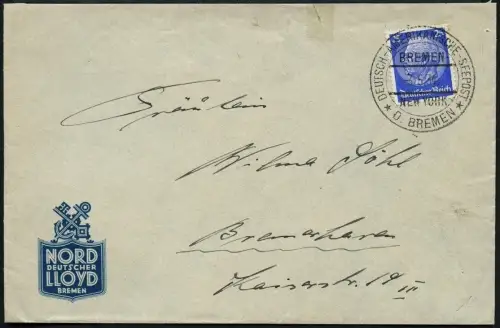 DEUTSCH-AMERIKANISCHE SEEPOST
BREMEN
NEW YORK
D. BREMEN
Deutsches Reich
Fräulein
Wilma Döhl
Bremerhaven
Kaiserstr. 14 III
NORD
DEUTSCHER
LLOYD
BREMEN